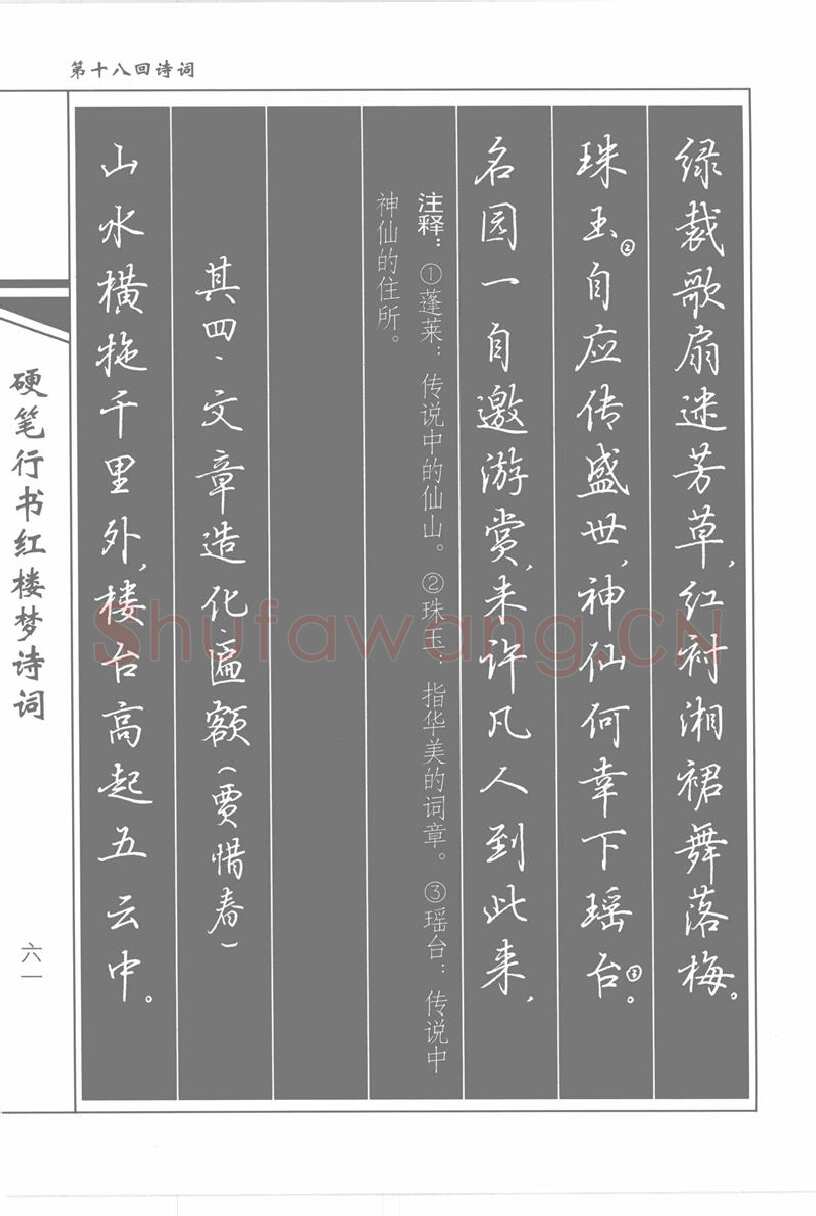 第十八回诗词
绿裁歌扇迷芳草,红衬湘裙舞落梅。
珠玉②自应传盛世,神仙何幸下瑶台③。
名园一自邀游赏,未许凡人到此来,
注释：①蓬莱：传说中的仙山。②珠玉：指华美的词章。③瑶台：传说中
神仙的住所。
其四、文章造化匾额(贾惜春)
山水横拖千里外,楼台高起五云中。
硬笔行书红楼梦诗词
六一
Shufawang.CN